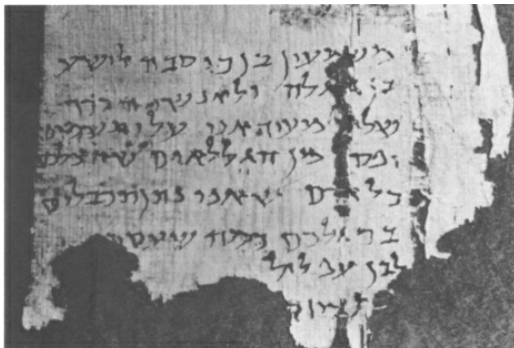 משמעון בן כוסבה לישע
בן גלגלה ולאנשי
שלום מעיד אני עלי תשמים
מן הגללאים שהצלכם
כל אדם שאני נותן תכבלים
ברגלכם כמה שעסתי
לבן עפלול